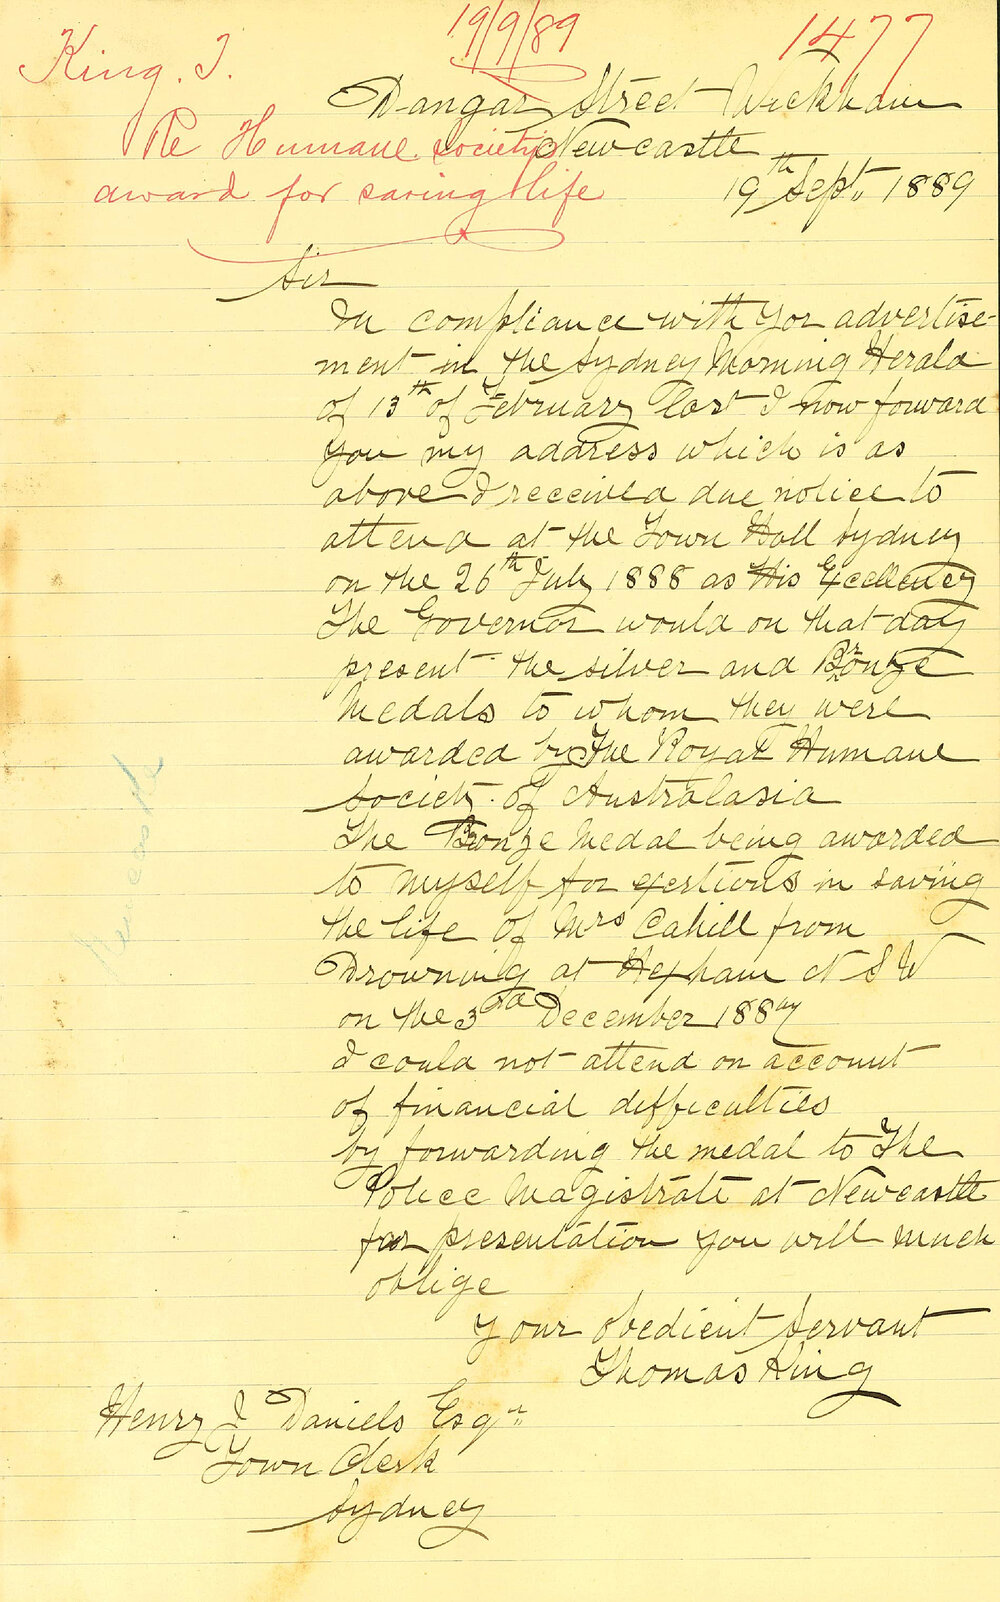 19/9/89
1477
King. T.
Re Humane society's
award for saving life
Dangar Street Wickham
Newcastle
19th Sept. 1889
Sir
In compliance with yor advertise-
ment in the Sydney Morning Herald
of 13th of February last I now forward
you my address which is as
above I received due notice to
attend at the Town Hall Sydney
on the 26th July 1888 as His Excellency
The Governor would on that day
present the silver and Bronze
Medals to whom they were
awarded by The Royal Humane
Society of Australasia
The Bronze Medal being awarded
to myself for exertions in saving
the life of Mrs Cahill from
Drowning at Hexham N S W
on the 3rd December 188
I could not attend on account
of financial difficulties
by forwarding the medal to The
Police Magistrate at Newcastle
for presentation you will much
oblige
Your obedient Servant
Thomas King
Henry J Daniels Esqr
Town Clerk
Sydney